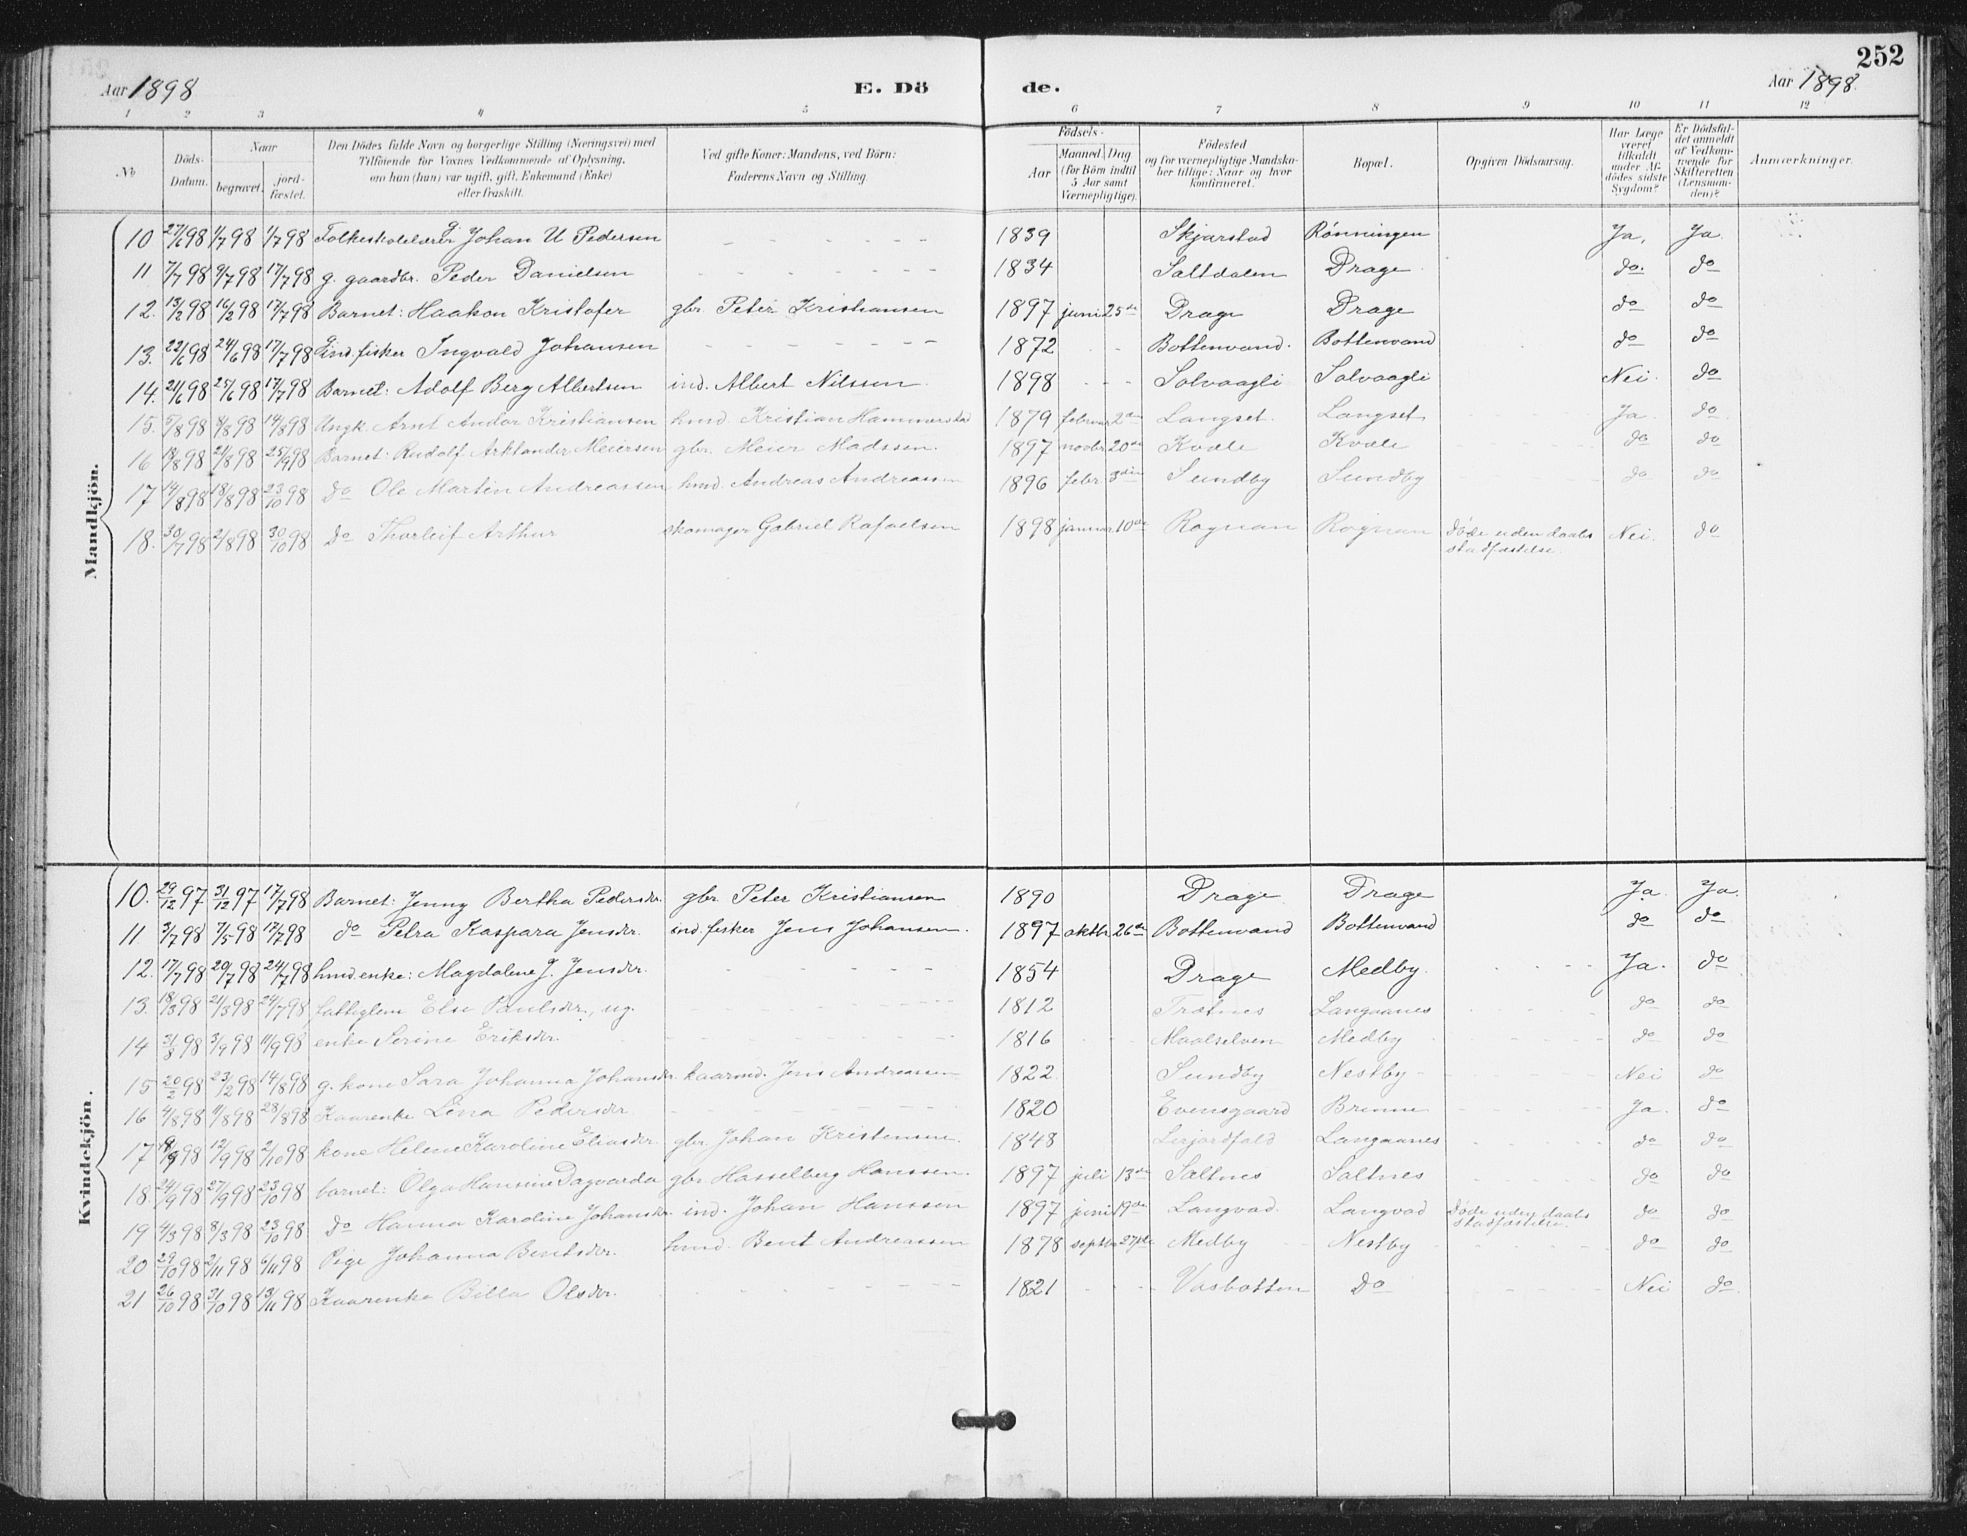 252
Aar 1898
E. Dö
de.
Aar 1898.
1 2 3 4 5 6 7 8 9 10 11 12
No
Döds-Datum.
Naar
begravet.
jord-fæstet.
Den Dödes fulde Navn og borgerlige Stilling (Næringsvei) med
Tilföiende for Voxnes Vedkommende af Oplysning,
om han (hun) var ugift, gift, Enkemand (Enke)
eller fraskilt.
Ved gifte Koner: Mandens, ved Börn:
Faderens Navn og Stilling.
Födsels-
Aar
Maaned Dag
(for Börn indtil
5 Aar samt
Værnepligtige).
Födested
og for værnepligtige Mandska-
ber tillige: Naar og hvor
konfirmeret.
Bopæl.
Opgiven Dödsaarsag.
Har Læge
været
tilkaldt
under Af-
dödes sidste
Sygdom?
Er Dödsfal-
det anmeldt
af Vedkom-
mende for
Skifteretten
(Lensman-
den)?
Anmærkninger.
Mandkjön.
10 27/6 98 1/7 98 1/7 98 Folkeskolelærer g. Johan U Pedersen - - - - - - 1839 Skjerstad Rönningen Ja. Ja.
11 7/7 98 9/7 98 17/7 98 g. gaardbr. Peder Danielsen - - - - - - 1834 Saltdalen Drage do. do
12. 13/2 98 16/2 98 17/7 98 Barnet: Haakon Kristofer gbr. Peter Kristiansen 1897 juni 25de Drage Drage do do
13. 22/6 98 24/6 98 17/7 98 g ind. fisker Ingvald Johansen - - - - - - 1872 - - Bottenvand. Bottenvand do do
14. 21/6 98 25/6 98 17/7 98 Barnet: Adolf Berg Albertsen ind. Albert Nilssen 1898 - - - Solvaagli Solvaagli Nei. do
15. 5/8 98 8/8 98 14/8 98 Ungk. Arnt Andor Kristiansen hmd. Kristian Hammerstad 1879 februar 2den Langset. Langset Ja. do.
16 18/8 98 21/8 98 25/9 98 Barnet: Rudolf Arklander Meiersen gbr. Meier Madssen. 1897 novbr 20de Kvæle Kvæle do do
17 14/8 98 18/8 98 23/10 98 do Ole Martin Andreassen hmd. Andreas Andreassen 1896 febr. 3die Sundby Sundby do do
18. 30/7 98 2/8 98 30/10 98 do Thorleif Arthur skomager Gabriel Rafaelsen 1898 januar 10de Rognan Rognan Döde uden daabs Nei. do
stadfæstelse.
Kvindekjön.
10. 29/12 97 31/12 97 17/7 98 Barnet: Jenny Bertha Pedersdr. gbr. Peter Kristiansen 1890 Drage Drage Ja. Ja.
11 3/7 98 7/5 98 17/7 98 do Petra Kaspara Jensdr. ind. fisker Jens Johansen. 1897 oktbr 26de Bottenvand Bottenvand do do
12. 17/7 98 20/7 98 24/7 98 hmd. enke: Magdalene J. Jensdr. - - - - 1854 Drage Medby. - - - - Ja. do
13. 18/3 98 21/3 98 24/7 98 Else Paulsdr., ug. - - - - 1812 Langaanes do do
14 31/8 98 3/9 98 11/9 98 enke Serine Eriksdr. - - - - 1816 - - Maalselven Medby do do
15 20/2 98 23/2 98 14/8 98 g. kone Sara Johanna Johansdr. kaarmd. Jens Andreassen 1822 Sundby Nestby - Nei do
16 4/8 98 11/8 98 28/8 98 Kaarenke Lina Pedersdr. - - - - 1820 Evensgaard Brenne Ja. do
17 9/9 98 12/9 98 2/10 98 kone Helene Karoline Eliasdr. gbr. Johan Kristensen. 1848 Leijordfald Langaanes do do
18. 24/9 98 27/9 98 23/10 98 barnet: Olga Hansine Dagvarda gbr. Hasselberg Hanssen. 1897 juli 13de Saltnes Saltnes do do
19 4/3 98 8/3 98 23/10 98 do Hanna Karoline Johansdr. ind. Johan Hanssen 1897 juni 19de Langvad. Langvad Döde uden daabs do do
stadfæstelse.
20 29/10 98 2/11 98 6/11 98 Pige Johanna Bentsdr. hmd. Bent Andreassen 1878 septbr. 27de Medby Nestby do do
21 26/10 98 31/10 98 13/11 98 Kaarenke Billa Olsdr. - - - - 1821 - - - Vasbotten do Nei do